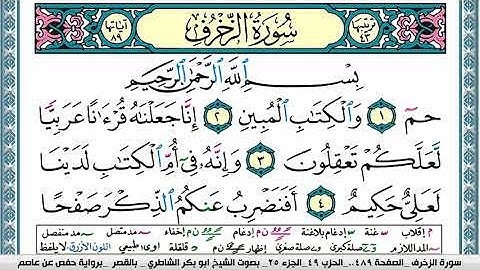 ترتيبها ٤٣ سُورَةُ الزُّخْرُفِ آياتها ٨٩
بِسْمِ ٱللَّهِ ٱلرَّحْمَٰنِ ٱلرَّحِيمِ
حمٓ ١ وَٱلْكِتَٰبِ ٱلْمُبِينِ ٢ إِنَّا جَعَلْنَٰهُ قُرْءَٰنًا عَرَبِيًّا
لَّعَلَّكُمْ تَعْقِلُونَ ٣ وَإِنَّهُۥ فِىٓ أُمِّ ٱلْكِتَٰبِ لَدَيْنَا
لَعَلِىٌّ حَكِيمٌ ٤ أَفَنَضْرِبُ عَنكُمُ ٱلذِّكْرَ صَفْحًا
م إقلاب غنة إدغام بلاغنة ن م إدغام ن م إخفاء مد متصل مد منفصل
المد اللازم صلة كبرى صلة صغرى إظهار ن م قلقلة اوى طبيعي اللون الأزرق لا يلفظ
سورة الزخرف _الصفحة ٤٨٩_ الحزب ٤٩_ الجزء ٢٥_ بصوت الشيخ ابو بكر الشاطري _ بالقصر _برواية حفص عن عاصم